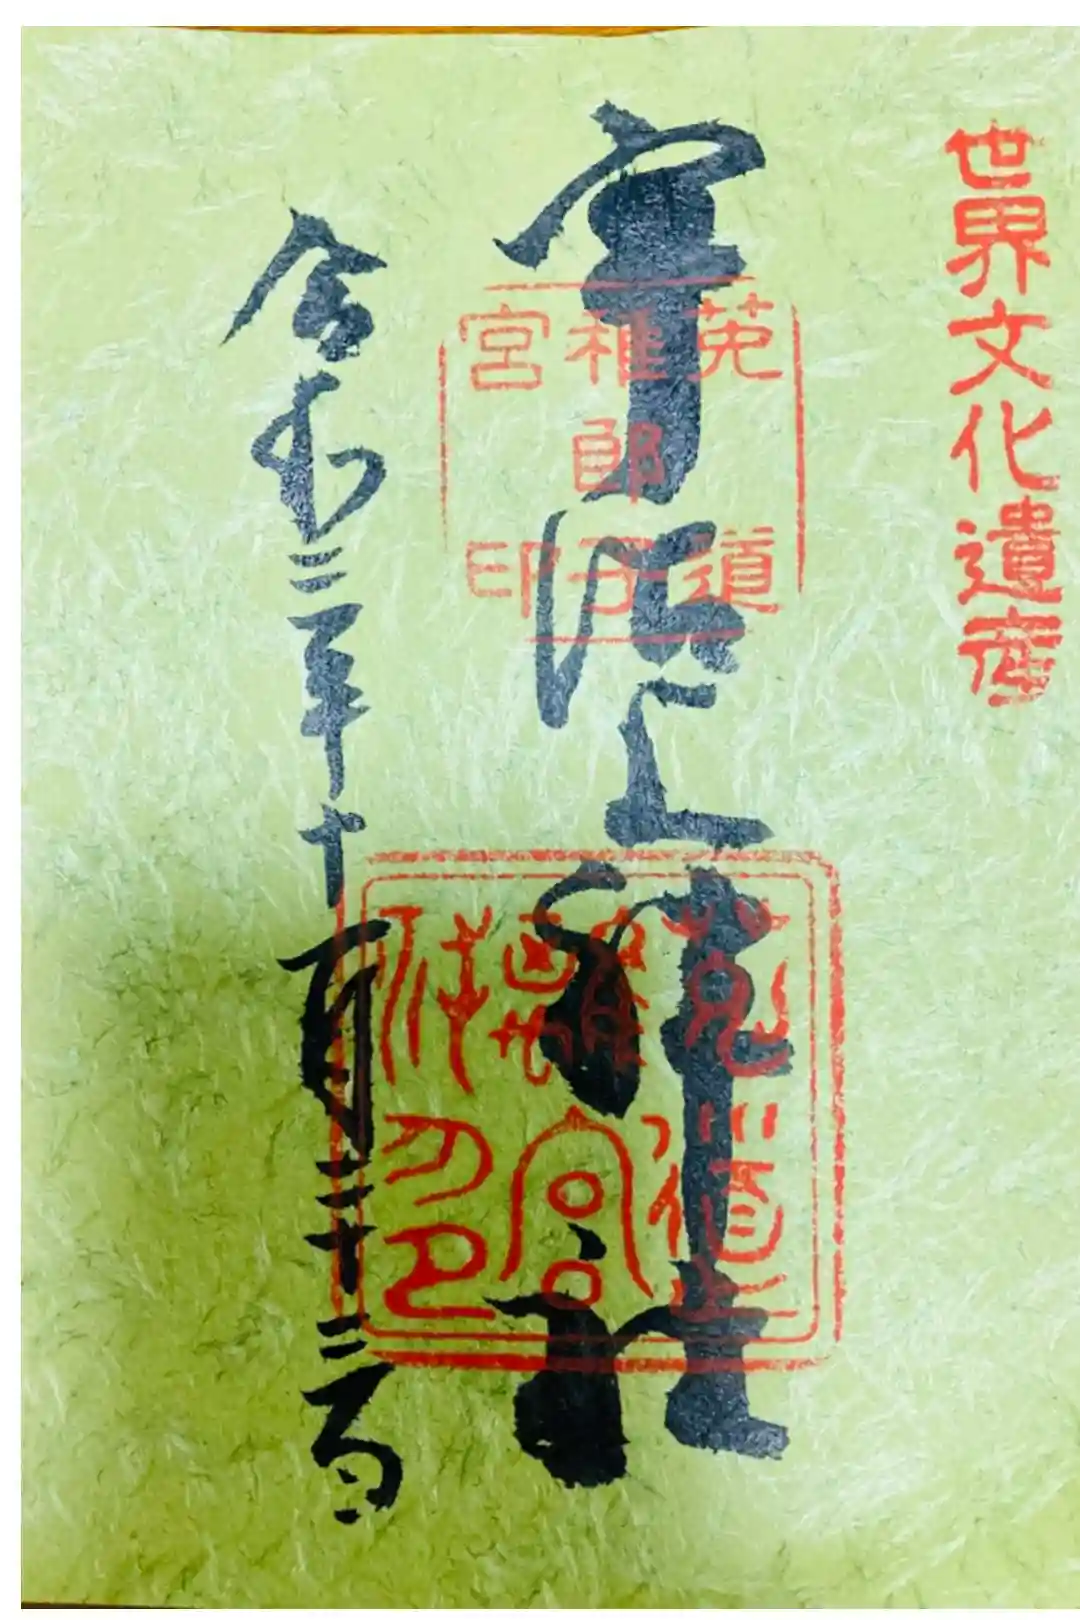 世界文化遺産
宇治上神社
菟道
稚郎子
宮印
令和三年十一月二十三日